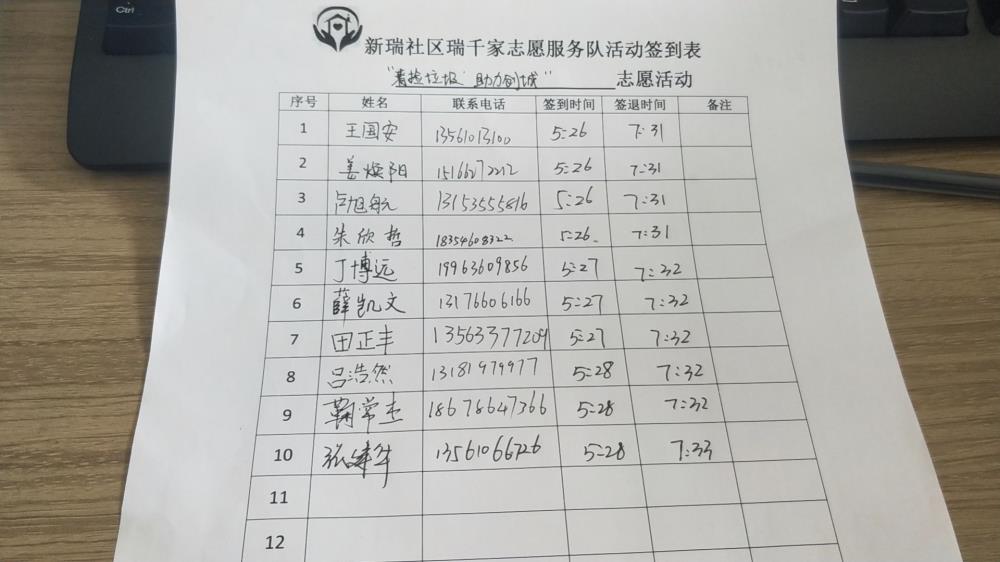 Ctrl
新瑞社区瑞千家志愿服务队活动签到表
"清捡垃圾 助力创城" 志愿活动
序号 姓名 联系电话 签到时间 签退时间 备注
1 王国安 13561013100 5:26 7:31
2 姜焕阳 15166272212 5:26 7:31
3 卢旭航 13153555816 5:26 7:31
4 朱欣哲 18354608322 5:26 7:31
5 丁博远 19963609856 5:27 7:32
6 薛凯文 13176606166 5:27 7:32
7 田正丰 13563377209 5:27 7:32
8 吕浩然 13181979977 5:28 7:32
9 鞠常杰 18678647366 5:28 7:32
10 13561066726 5:28 7:33
11
12